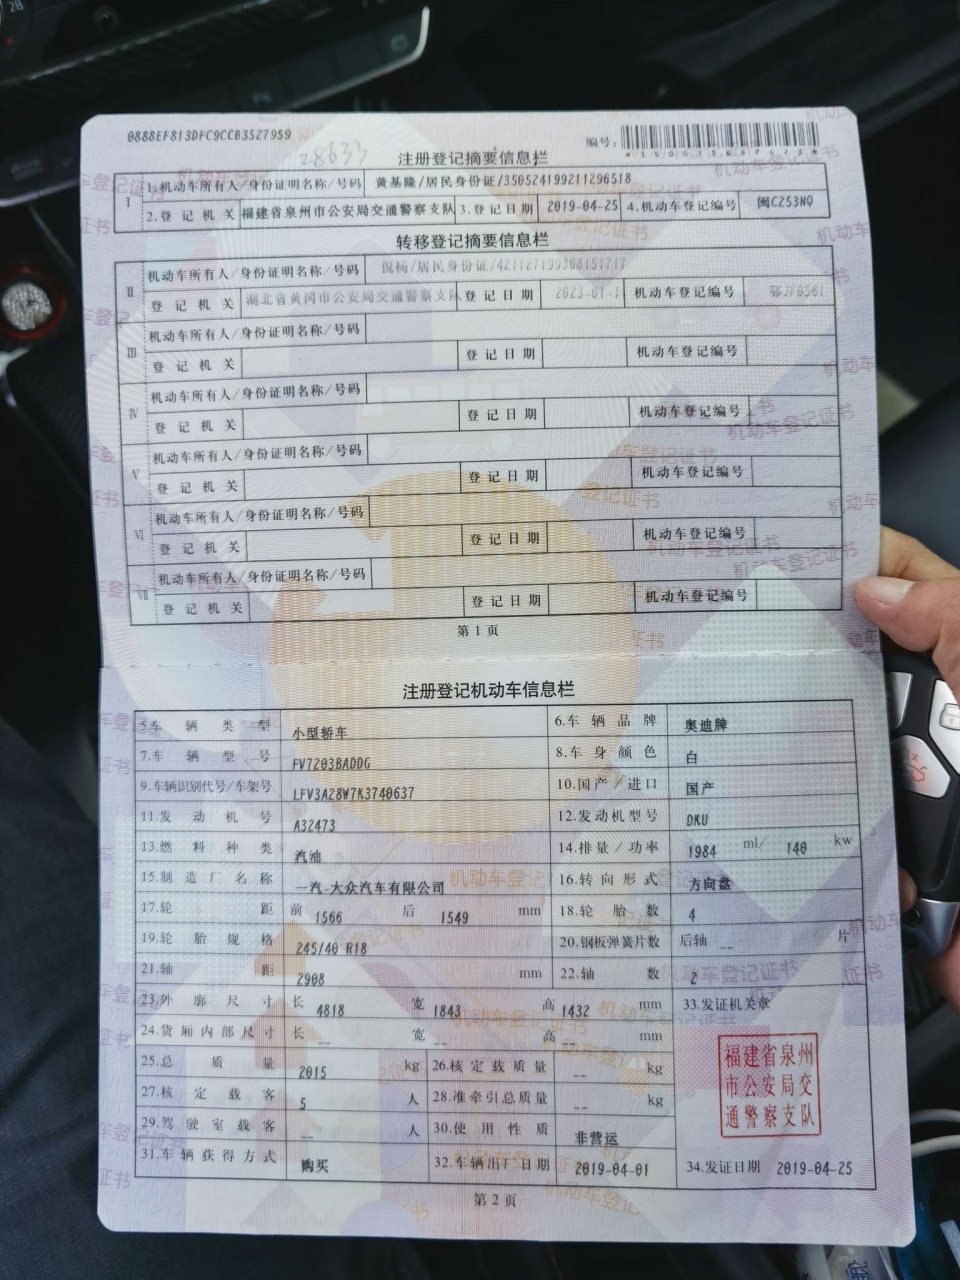 28
0888EF813DFC9CCB3527959
编号:
28633
注册登记摘要信息栏
I
1.机动车所有人/身份证明名称/号码 黄基隆/居民身份证/350524199211296518
2.登记机关 福建省泉州市公安局交通警察支队 3.登记日期 2019-04-25 4.机动车登记编号 闽C253NQ
转移登记摘要信息栏
II
机动车所有人/身份证明名称/号码 倪杨/居民身份证/421127199308151717
登记机关 湖北省黄冈市公安局交通警察支队 登记日期 2023-01-1 机动车登记编号 鄂JF0561
III
机动车所有人/身份证明名称/号码
登记机关 登记日期 机动车登记编号
IV
机动车所有人/身份证明名称/号码
登记机关 登记日期 机动车登记编号
V
机动车所有人/身份证明名称/号码
登记机关 登记日期 机动车登记编号
VI
机动车所有人/身份证明名称/号码
登记机关 登记日期 机动车登记编号
VII
机动车所有人/身份证明名称/号码
登记机关 登记日期 机动车登记编号
第1页
注册登记机动车信息栏
5.车辆类型 小型轿车 6.车辆品牌 奥迪牌
7.车辆型号 FV7203BADDG 8.车身颜色 白
9.车辆识别代号/车架号 LFV3A28W7K3740637 10.国产/进口 国产
11.发动机号 A32473 12.发动机型号 DKU
13.燃料种类 汽油 14.排量/功率 1984 ml/ 140 kw
15.制造厂名称 一汽-大众汽车有限公司 16.转向形式 方向盘
17.轮距 前 1566 后 1549 mm 18.轮胎数 4
19.轮胎规格 245/40 R18 20.钢板弹簧片数 后轴 -- 片
21.轴距 2908 mm 22.轴数 2
23.外廓尺寸 长 4818 宽 1843 高 1432 mm 33.发证机关章
24.货厢内部尺寸 长 -- 宽 -- 高 -- mm
25.总质量 2015 kg 26.核定载质量 -- kg
福建省泉州
市公安局交
通警察支队
27.核定载客 5 人 28.准牵引总质量 -- kg
29.驾驶室载客 -- 人 30.使用性质 非营运
31.车辆获得方式 购买 32.车辆出厂日期 2019-04-01 34.发证日期 2019-04-25
第2页